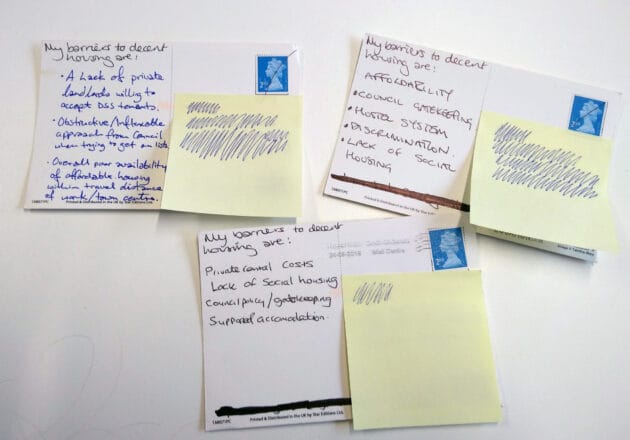 My barriers to decent
housing are:
• A Lack of private
landlords willing to
accept DSS tenants.
• Obstructive/Inflexible
approach from Council
when trying to get on lists
• Overall poor availability
of affordable housing
within travel distance
of work/town centre.
Printed & Distributed in the UK by Star Editions Ltd.
2nd
My barriers to decent
housing are:
AFFORDABILITY
• COUNCIL GATEKEEPING
• HOSTEL SYSTEM
• DISCRIMINATION.
• LACK OF SOCIAL
HOUSING
2nd
My barriers to decent
housing are:
Private rental costs
Lack of Social housing
Council policy/gatekeeping
Supported accomodation.
Mail Centre
2nd
Printed & Distributed in the UK by Star Editions Ltd.